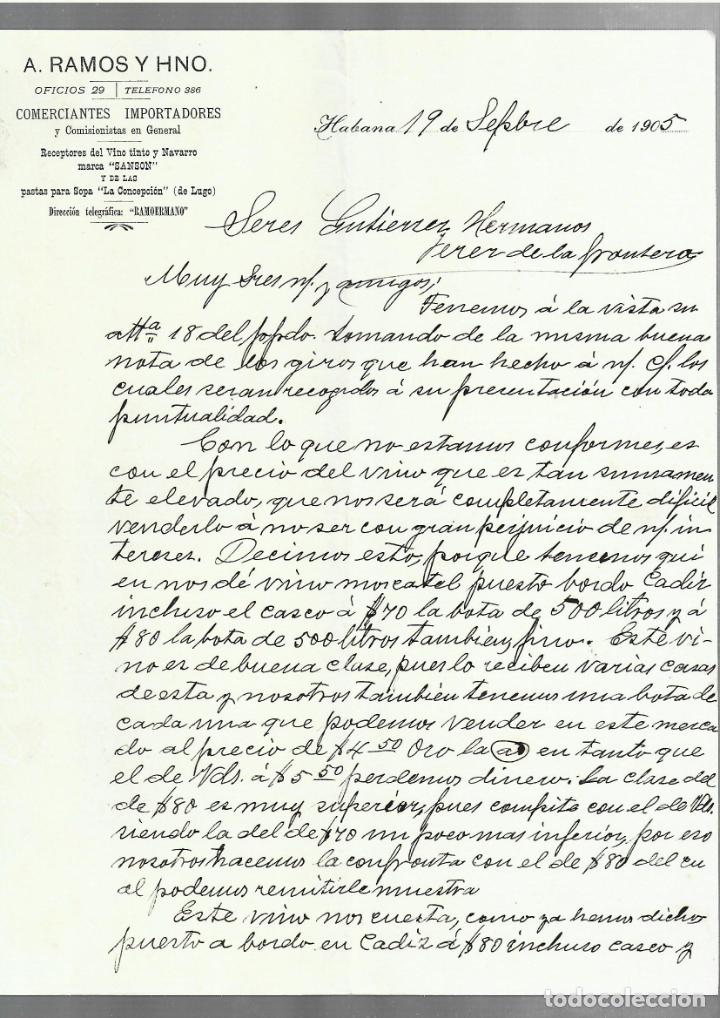 A. RAMOS Y HNO.
OFICIOS 29 | TELEFONO 386
COMERCIANTES IMPORTADORES
y Comisionistas en General
Receptores del Vino tinto y Navarro
marca "SANSON"
Y DE LAS
pastas para Sopa "La Concepción" (de Lugo)
Dirección telegráfica: "RAMOERMANO"
Habana 19 de Sepbre de 1905
Sres Gutierrez Hermanos
Jerez de la frontera
Muy Sres n/. y amigos;
Tenemos á la vista su
atta 18 del ppdo. tomando de la misma buena
nota de los giros que han hecho á n/. c/. los
cuales seran recogidos á su presentación con toda
puntualidad.
Con lo que no estamos conformes, es
con el precio del vino que es tan sumamen
te elevado, que nos será completamente dificil
venderlo á no ser con gran perjuicio de n/. in
terezes. Decimos esto, porque tenemos qui
en nos dé vino moscatel puesto bordo Cadiz
incluso el casco á $70 la bota de 500 litros y á
$80 la bota de 500 litros tambien, fino. Este vi-
no es de buena clase, pues lo reciben varias casas
de esta y nosotros tambien tenemos una bota de
cada una que podemos vender en este merca
do al precio de $4.50 Oro la @ en tanto que
el de Vds. á $5.50 perdemos dinero. La clase del
de $80 es muy superior, pues compite con el de Vds.
siendo la del de $70 un poco mas inferior, por eso
nosotros hacemos la confronta con el de $80 del cu
al podemos remitirle muestra
Este vino nos cuesta, como ya hemos dicho
puesto a bordo en Cadiz á $80 incluso casco y
todocoleccion
todocoleccion.net